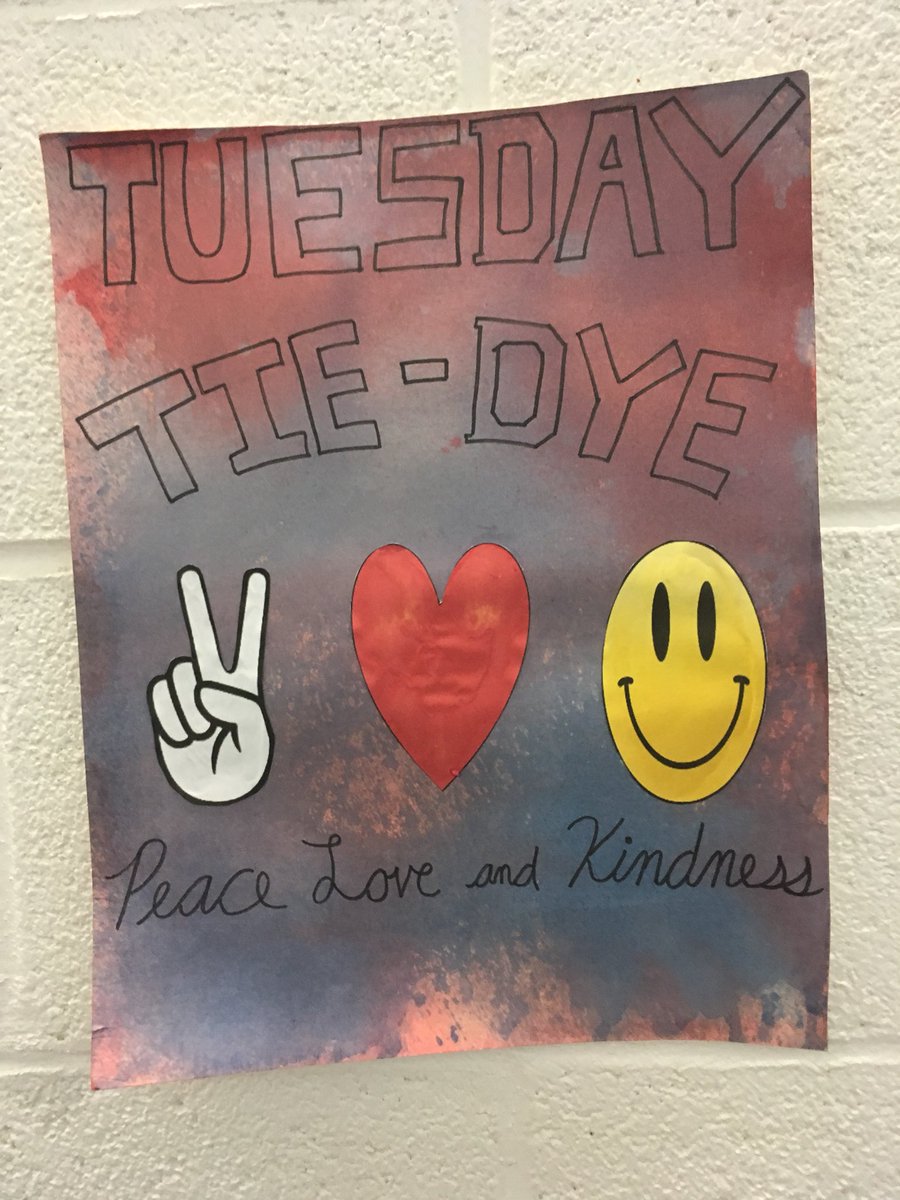 TUESDAY
TIE-DYE
Peace Love and Kindness